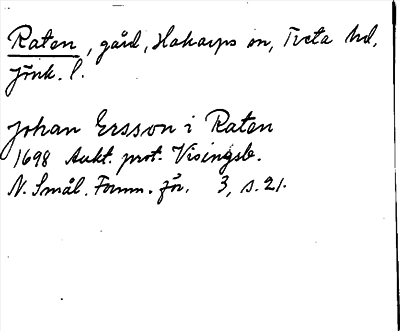 Raten, gård, Hakarps sn, Tveta hd,
Jönk. l.
Johan Ersson i Raten
1698 Aukt. prot. Visingsb.
N. Smål. Fornm. för. 3, s. 21.